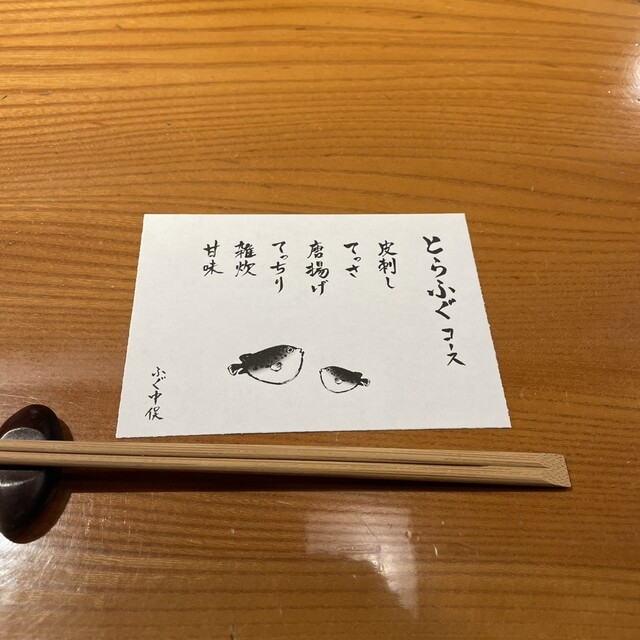 とらふぐコース
皮刺し
てっさ
唐揚げ
てっちり
雑炊
甘味
ふぐ中俣